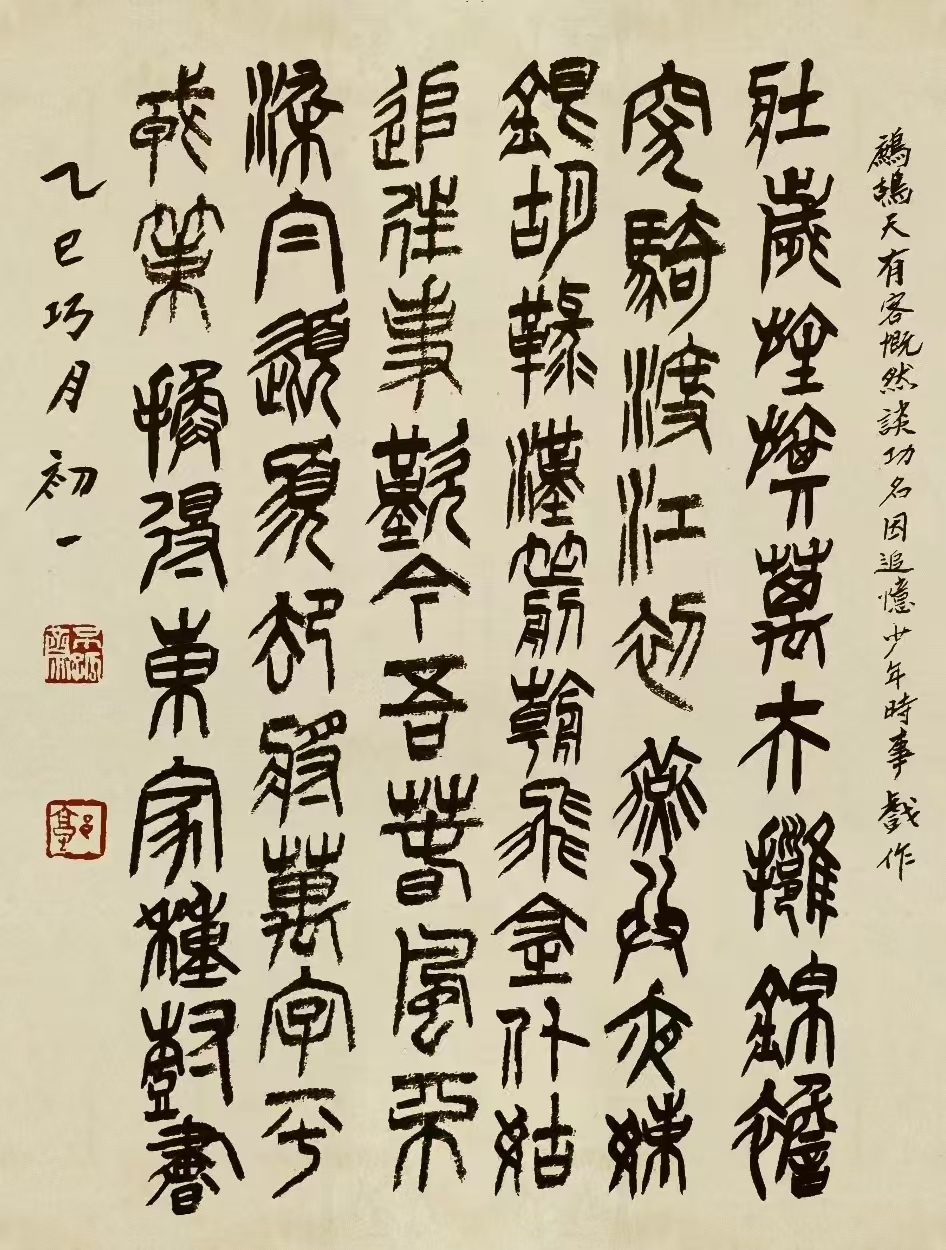 鷓鴣天有客慨然談功名因追憶少年時事戲作
壯歲旌旗萬夫擁錦襜
突騎渡江初燕兵夜娕
銀胡䩮漢箭朝飛金仆姑
追往事歎今吾春風不
染白髭須卻將萬字平
戎策換得東家種樹書
乙巳巧月初一